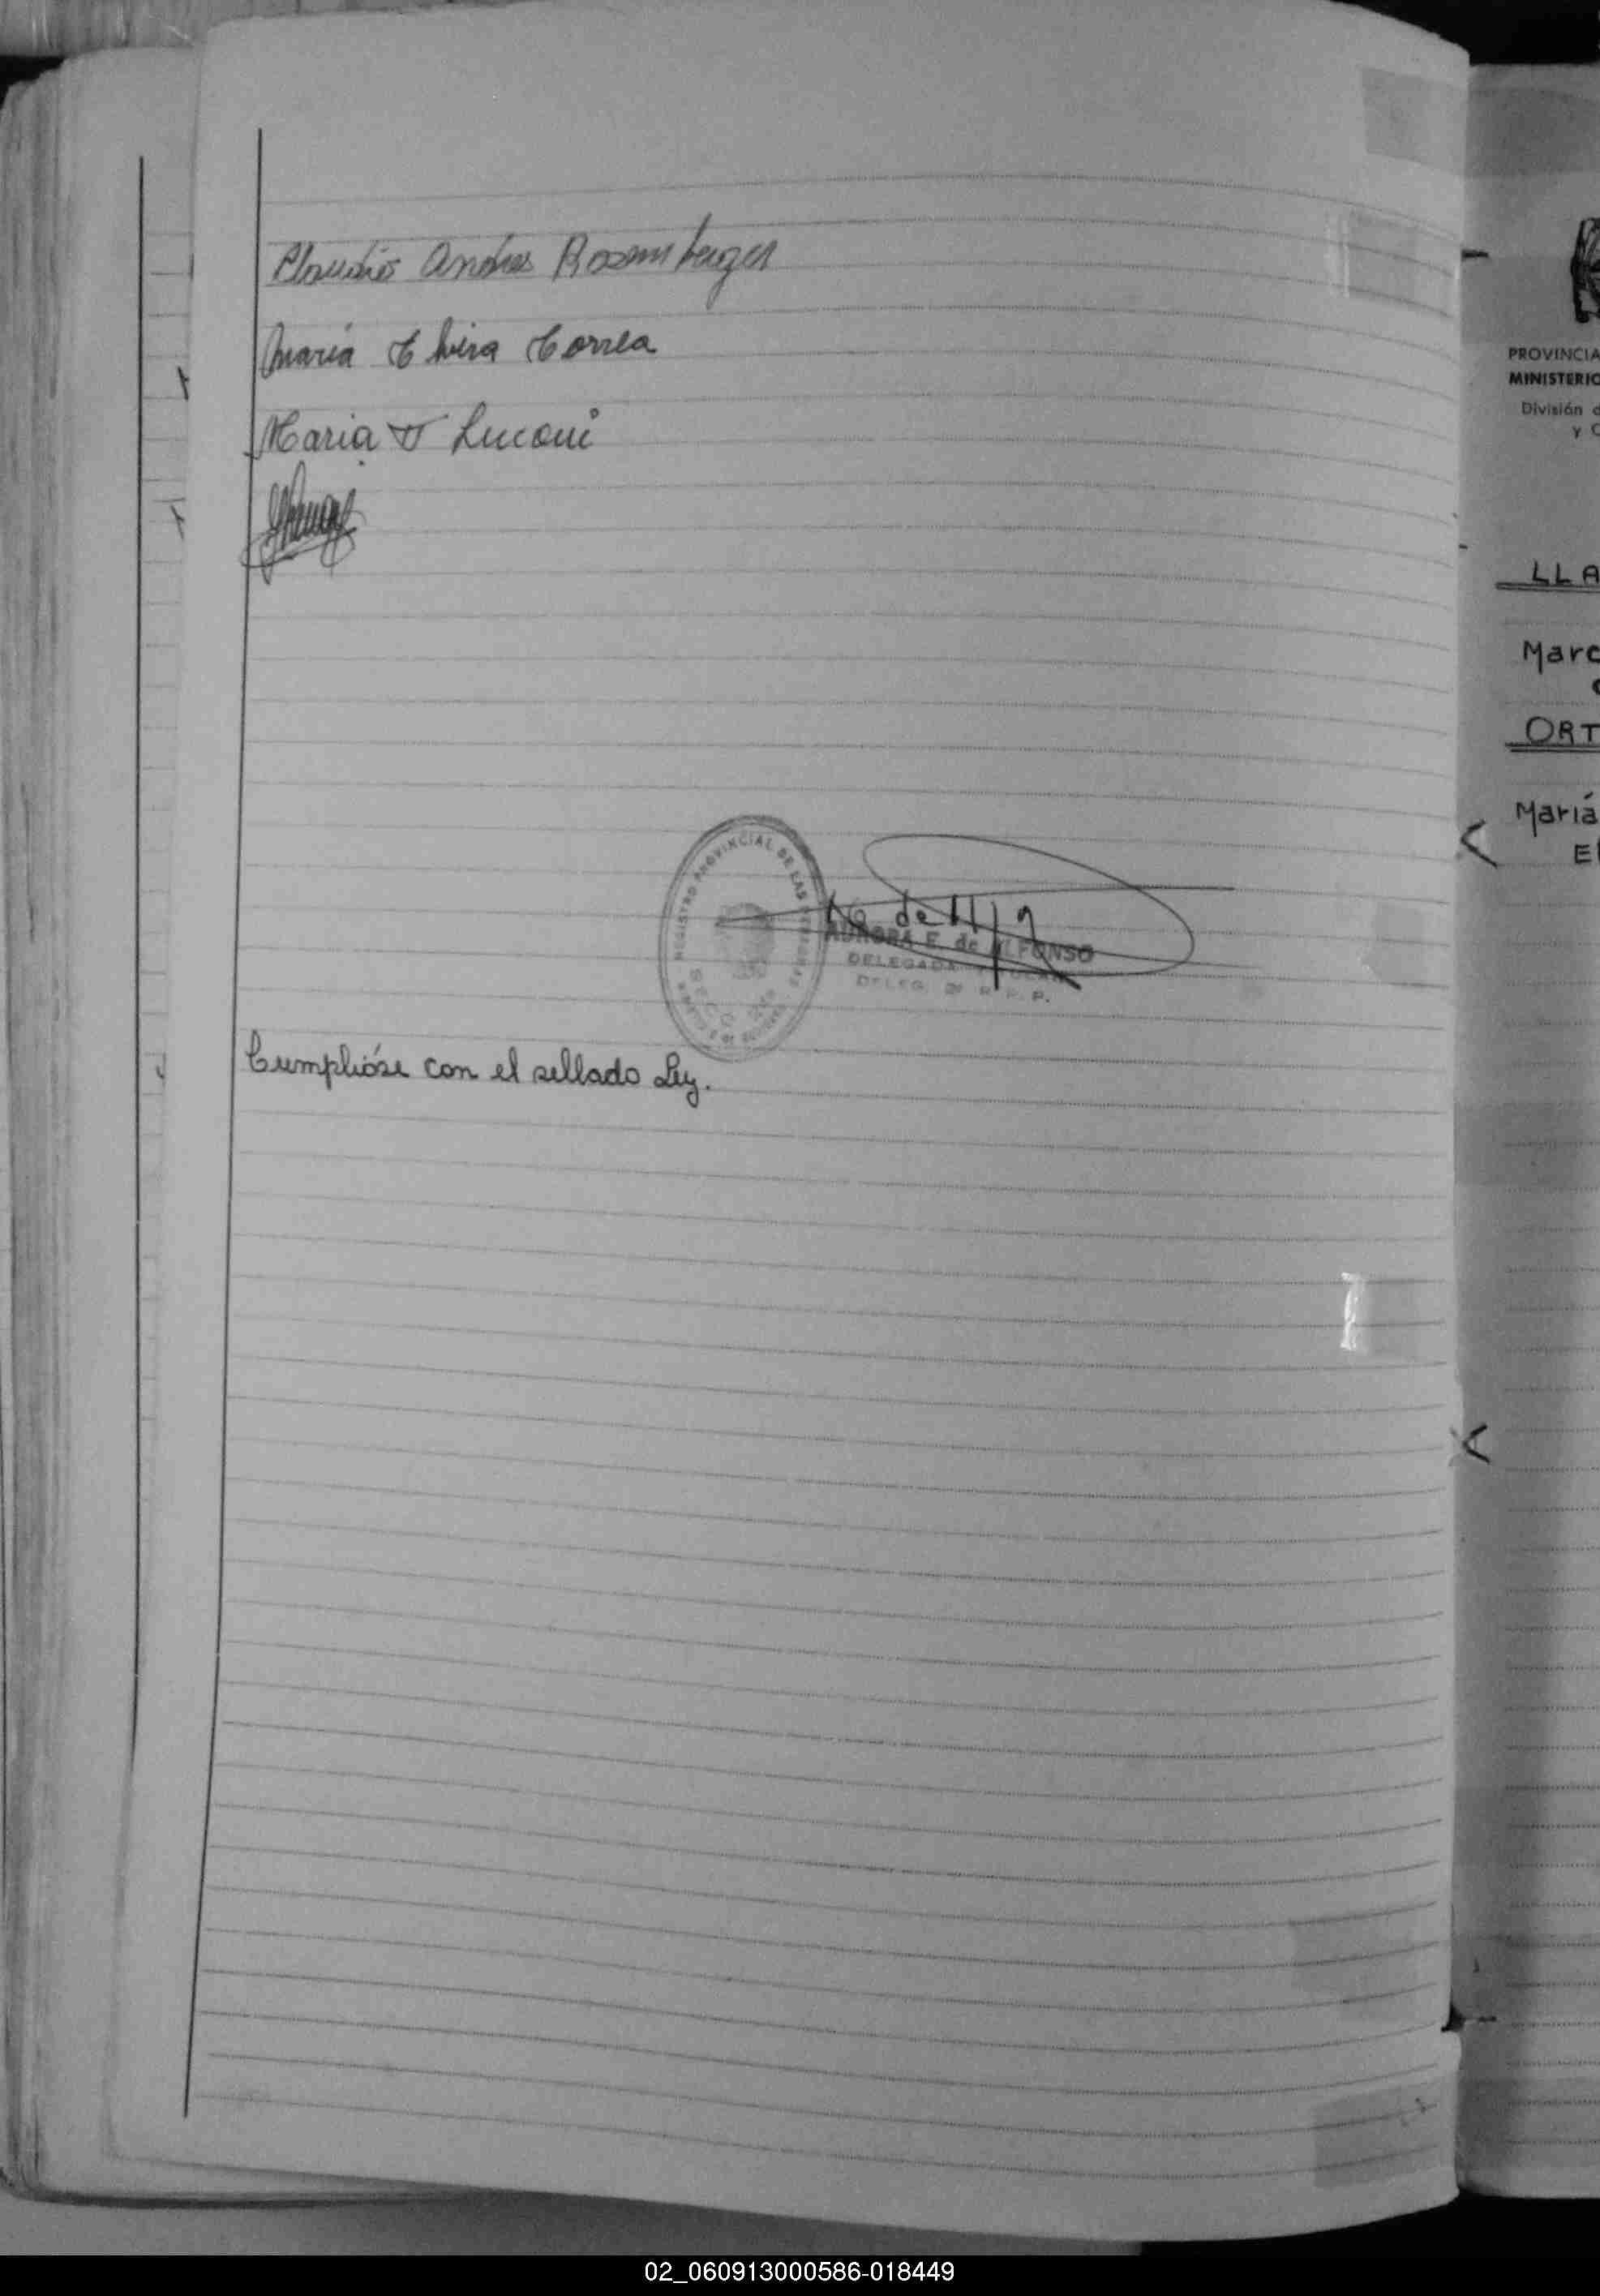 Claudio Andres Rosemberger
María Elvira Correa
Maria T Luconi
REGISTRO PROVINCIAL DE LAS PERSONAS
AURORA E. de ALFONSO
DELEGADA TITULAR
DELEG. R. P. P.
Cumplióse con el sellado Ley.
PROVINCIA
MINISTERIO
División d
y C
LLA
Marc
ORT
Mariá
El
02_060913000586-018449